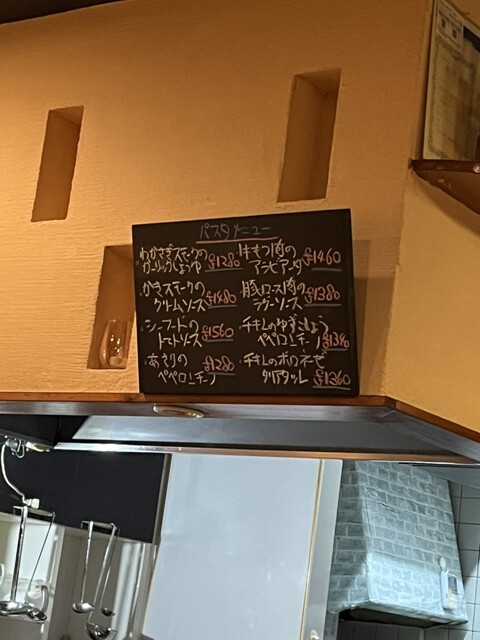 パスタメニュー
・わかさぎスモークの
ガーリックしょうゆ ¥1280
・かきスモークの
クリームソース ¥1480
・シーフードの
トマトソース ¥1560
・あさりの
ペペロンチーノ ¥1280
・牛もつ肉の
アラビアータ ¥1460
・豚ロース肉の
ラグーソース ¥1380
・チキンのゆずこしょう
ペペロンチーノ ¥1340
・チキンのボロネーゼ
タリアタッレ ¥1360